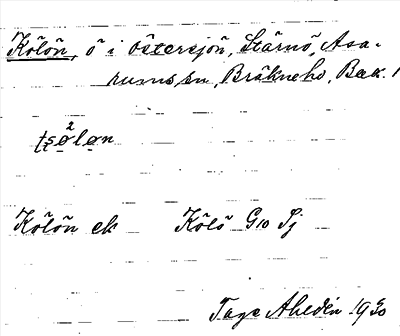 Kölön, ö i Östersjön, Stärnö, Asa-
rums sn, Bräkne hd, Blek. 1
tʂø²lən
Kölön ek Kölö G10 Sj
Tage Ahldén 1930